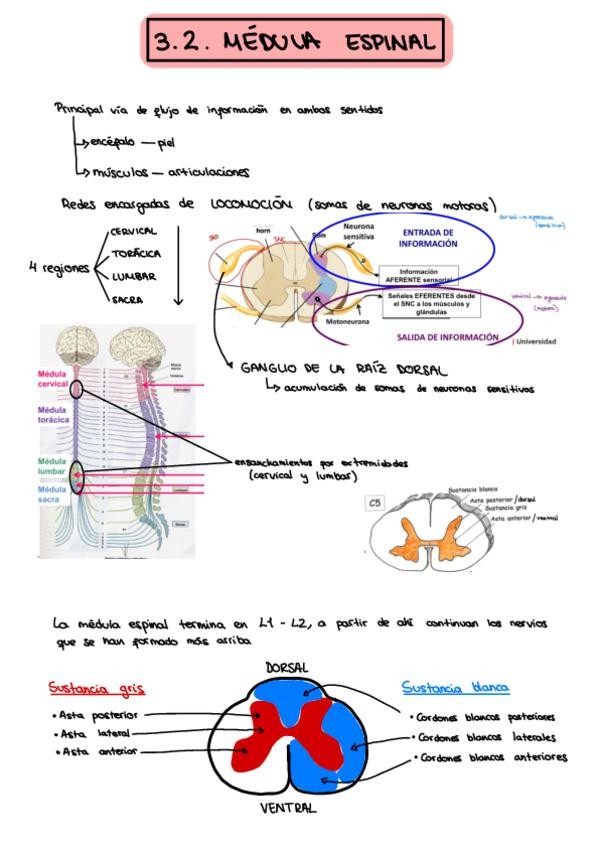 3.2. MÉDULA ESPINAL
Principal vía de flujo de información en ambos sentidos
encéfalo — piel
músculos — articulaciones
Redes encargadas de LOCOMOCIÓN (somas de neuronas motoras)
4 regiones
CERVICAL
TORÁCICA
LUMBAR
SACRA
horn
SNC
Neurona
sensitiva
ENTRADA DE
INFORMACIÓN
Información
AFERENTE sensorial
Señales EFERENTES desde
el SNC a los músculos y
glándulas
Motoneurona
SALIDA DE INFORMACIÓN
Universidad
dorsal → aferente
(sensitiva)
ventral → eferente
(motora)
GANGLIO DE LA RAÍZ DORSAL
acumulación de somas de neuronas sensitivas
Médula
cervical
Médula
torácica
Médula
lumbar
Médula
sacra
ensanchamientos por extremidades
(cervical y lumbar)
C5
Sustancia blanca
Asta posterior/dorsal
Sustancia gris
Asta anterior/ventral
La médula espinal termina en L1 - L2, a partir de ahí continúan los nervios
que se han formado más arriba
DORSAL
Sustancia gris
• Asta posterior
• Asta lateral
• Asta anterior
Sustancia blanca
• Cordones blancos posteriores
• Cordones blancos laterales
• Cordones blancos anteriores
VENTRAL